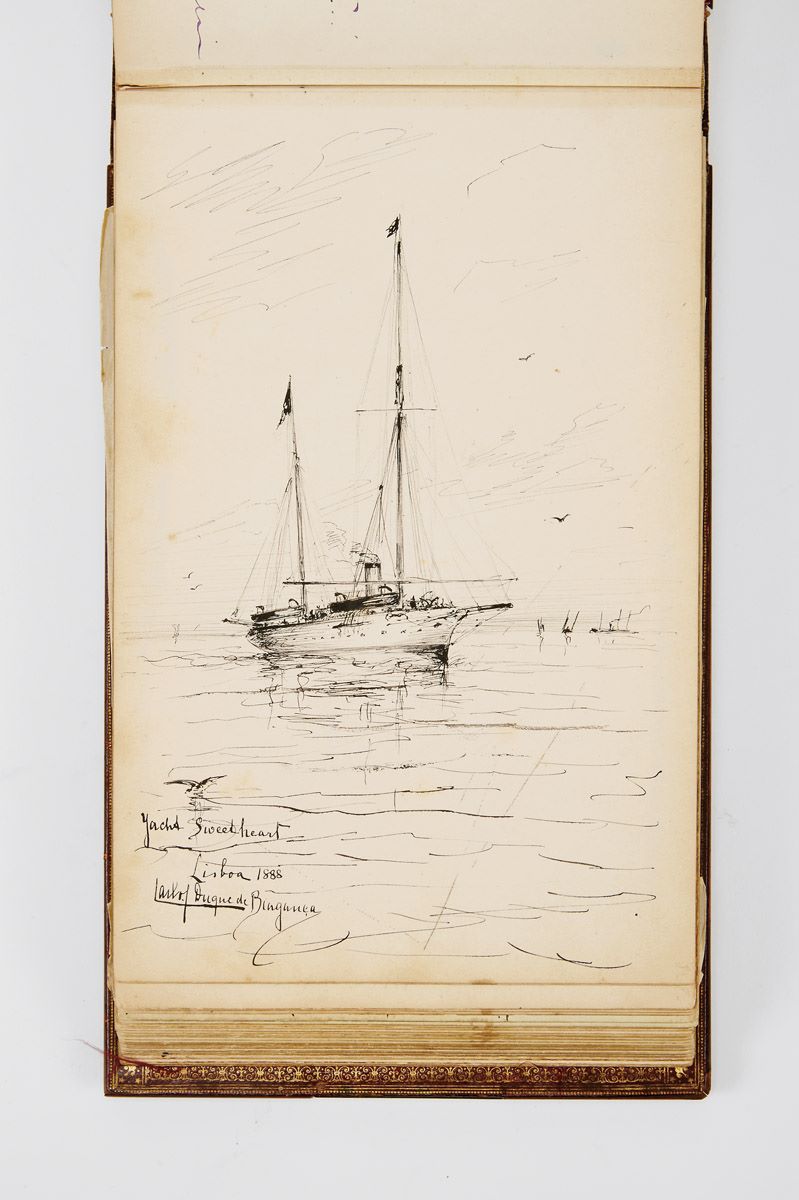 Yacht Sweetheart
Lisboa 1888
Carlos Duque de Bragança